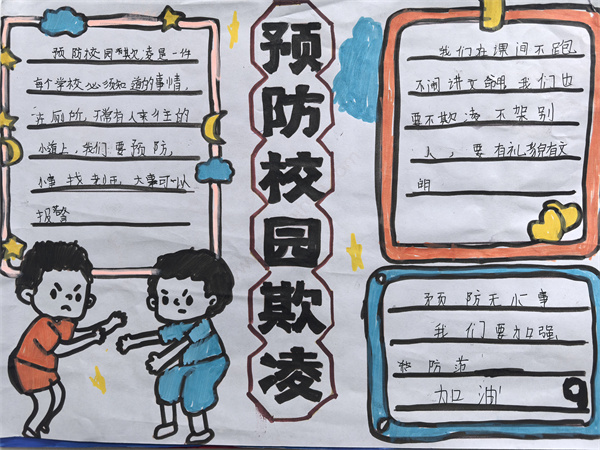 预防校园欺凌
预防校园欺凌是一件
每个学校必须知道的事情,
去厕所,不常有人来往的
小道上,我们要预防,
小事找老师,大事可以
报警
我们在课间不跑
不闹讲文明我们也
要不欺凌不架别
人,要有礼貌有文
明
预防无小事
我们要加强
防范
加油